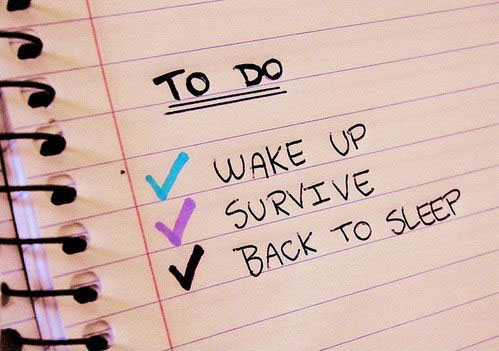 TO DO
WAKE UP
SURVIVE
BACK TO SLEEP